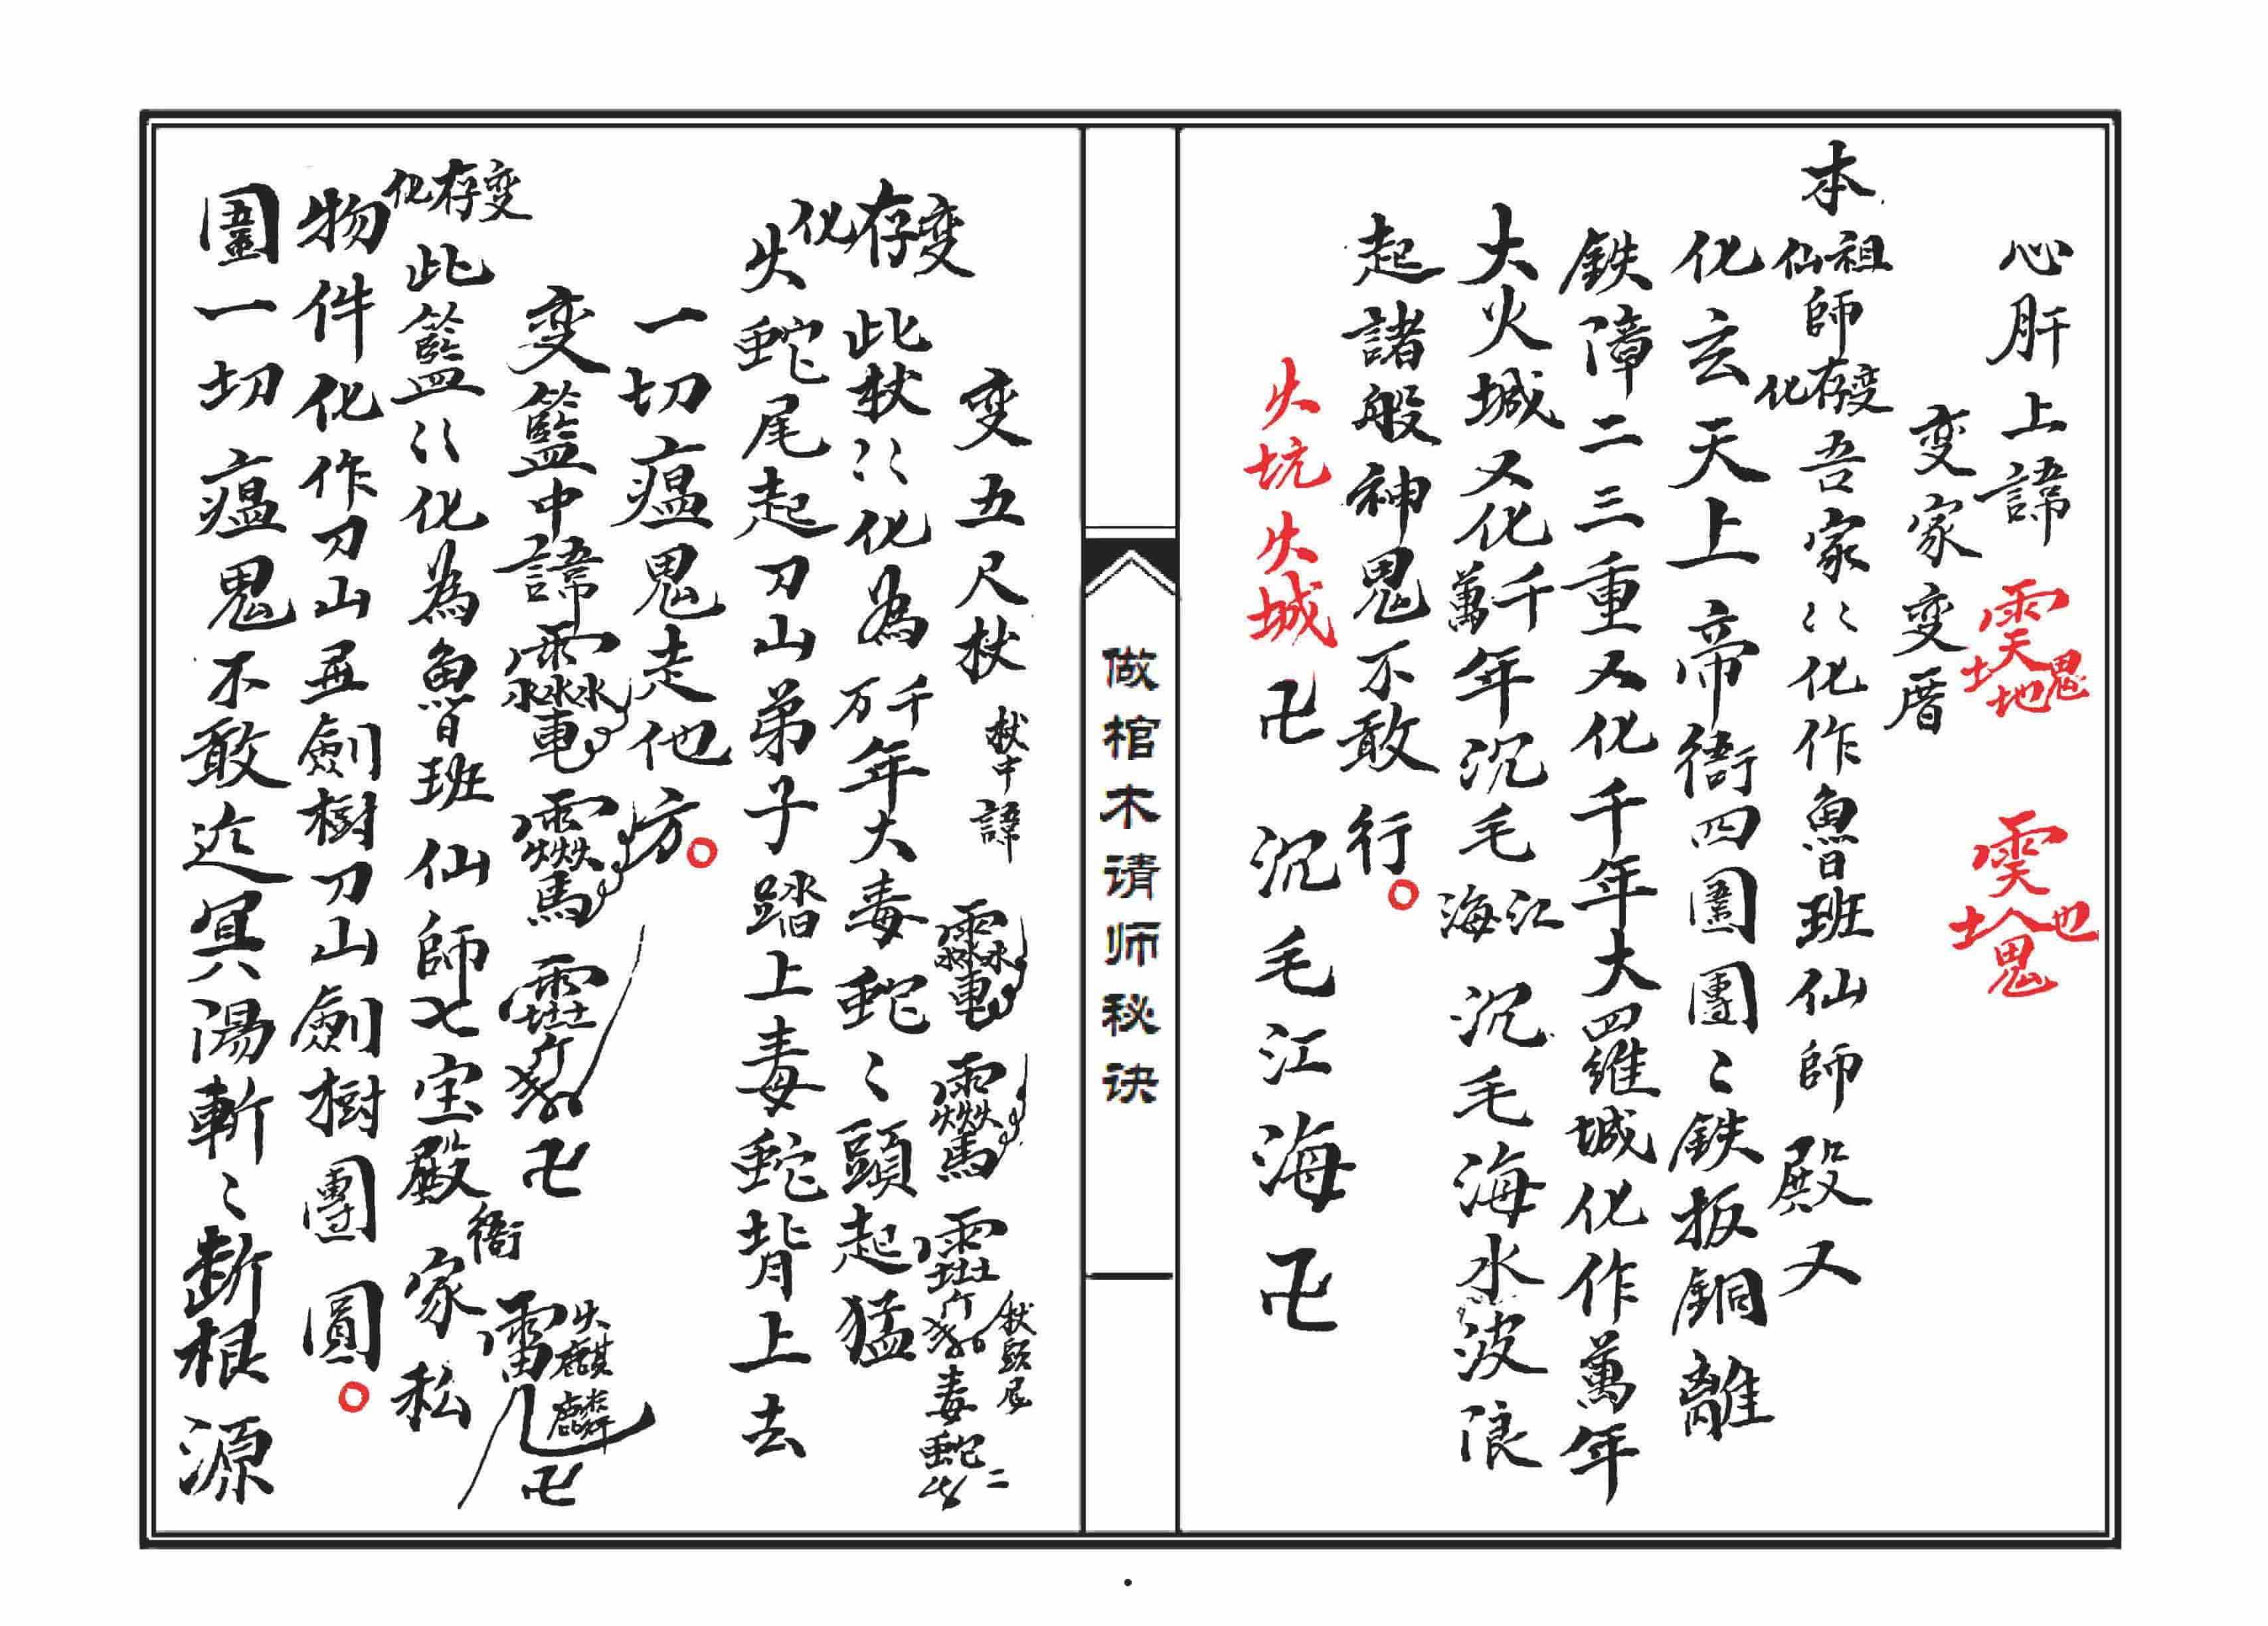 心肝上諱
变家变厝
本祖仙師变存化吾家〻化作魯班仙師殿又
化玄天上帝衙四圍團〻鉄板銅離
鉄障二三重又化千年大羅城化作萬年
大火城又化千萬年沉毛江海沉毛海水波浪
起諸般神鬼不敢行
火坑火城卍沉毛江海卍
做棺木请师秘诀
变五尺杖 杖中諱
杖頭尾 毒蛇二
变存化此杖〻化為千万年大毒蛇〻頭起猛
火蛇尾起刀山弟子踏上毒蛇背上去
一切瘟鬼走他坊
变籃中諱 卍
火麒麟 卍
变存化此籃〻化為魯班仙師七宝殿衙家私
物件化作刀山並劍樹刀山劍樹團圓
圍一切瘟鬼不敢近冥湯斬〻断根源